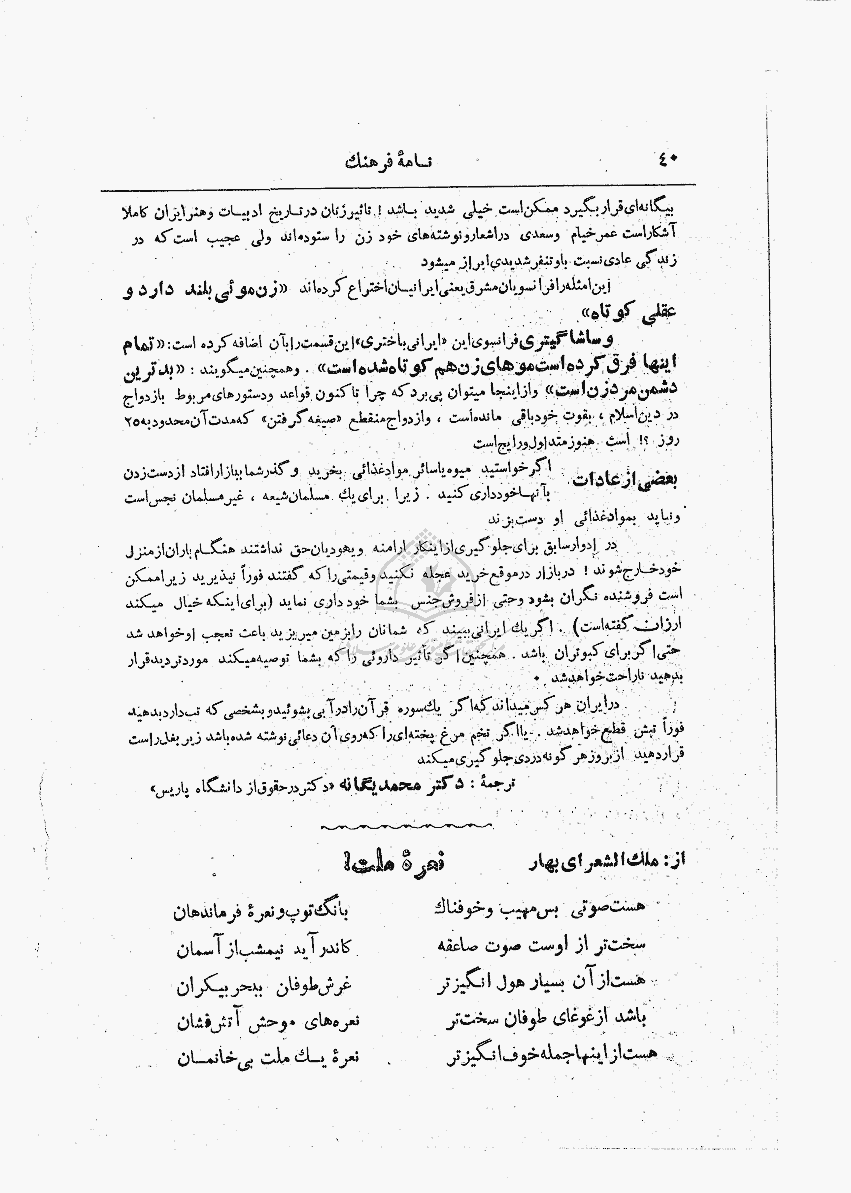 ٤٠ نامهٔ فرهنك
بیگانه‌ای قرار بگیرد ممکن است خیلی شدید باشد ! تاثیر زنان در تاریخ ادبیات و هنر ایران کاملا
آشکار است عمر خیام و سعدی در اشعار و نوشته‌های خود زن را ستوده‌اند ولی عجیب است که در
زندگی عادی نسبت باو تنفر شدیدی ابراز میشود
این امثله را فرانسویان مشرق یعنی ایرانیان اختراع کرده‌اند «زن موئی بلند دارد و
عقلی کوتاه»
وساشا گیتری فرانسوی این «ایرانی باختری» این قسمت را بآن اضافه کرده است: «تمام
اینها فرق کرده است موهای زن هم کوتاه شده است» . وهمچنین میگویند : «بدترین
دشمن مرد زن است» و از اینجا میتوان پی برد که چرا تا کنون قواعد و دستورهای مربوط بازدواج
در دین اسلام ، بقوت خود باقی مانده است ، و ازدواج منقطع «صیغه گرفتن» که مدت آن محدود به ۲۵
روز ؟! است هنوز متداول و رایج است
بعضی از عادات اگر خواستید میوه یا سائر مواد غذائی بخرید و گذر شما ببازار افتاد از دست زدن
بآنها خودداری کنید . زیرا برای یك مسلمان شیعه ، غیر مسلمان نجس است
و نباید بمواد غذائی او دست بزند
در ادوار سابق برای جلوگیری از اینکار ارامنه و یهودیان حق نداشتند هنگام باران از منزل
خود خارج شوند ! در بازار در موقع خرید عجله نکنید و قیمتی را که گفتند فوراً نپذیرید زیرا ممکن
است فروشنده نگران بشود و حتی از فروش جنس بشما خود داری نماید (برای اینکه خیال میکند
ارزان گفته است) . اگر یك ایرانی ببیند که شما نان را بزمین میریزید باعث تعجب او خواهد شد
حتی اگر برای کبوتران باشد . همچنین اگر تأثیر داروئی را که بشما توصیه میکند مورد تردید قرار
بدهید ناراحت خواهد شد .
در ایران هر کس میداند که اگر یك سوره قرآن را در آبی بشوئید و بشخصی که تب دارد بدهید
فوراً تبش قطع خواهد شد . یا اگر تخم مرغ پخته‌ای را که روی آن دعائی نوشته شده باشد زیر بغل راست
قرار دهید از بروز هر گونه دردی جلوگیری میکند
ترجمهٔ : دکتر محمد یگانه «دکتر در حقوق از دانشگاه پاریس»
از: ملك الشعرای بهار نعرهٔ ملت!
هست صوتی بس مهیب و خوفناك بانگ توپ و نعرهٔ فرماندهان
سخت‌تر از اوست صوت صاعقه کاندر آید نیمشب از آسمان
هست از آن بسیار هول انگیز تر غرش طوفان ببحر بیکران
باشد از غوغای طوفان سخت‌تر نعره‌های موحش آتش فشان
هست از اینها جمله خوف انگیز تر نعرهٔ یك ملت بی خانمان